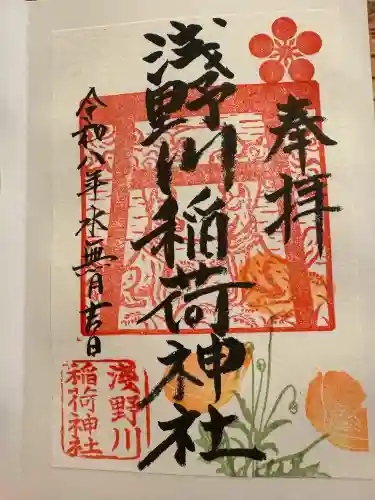 奉拝
浅野川稲荷神社
令和八年水無月吉日
淺野川
稲荷神社